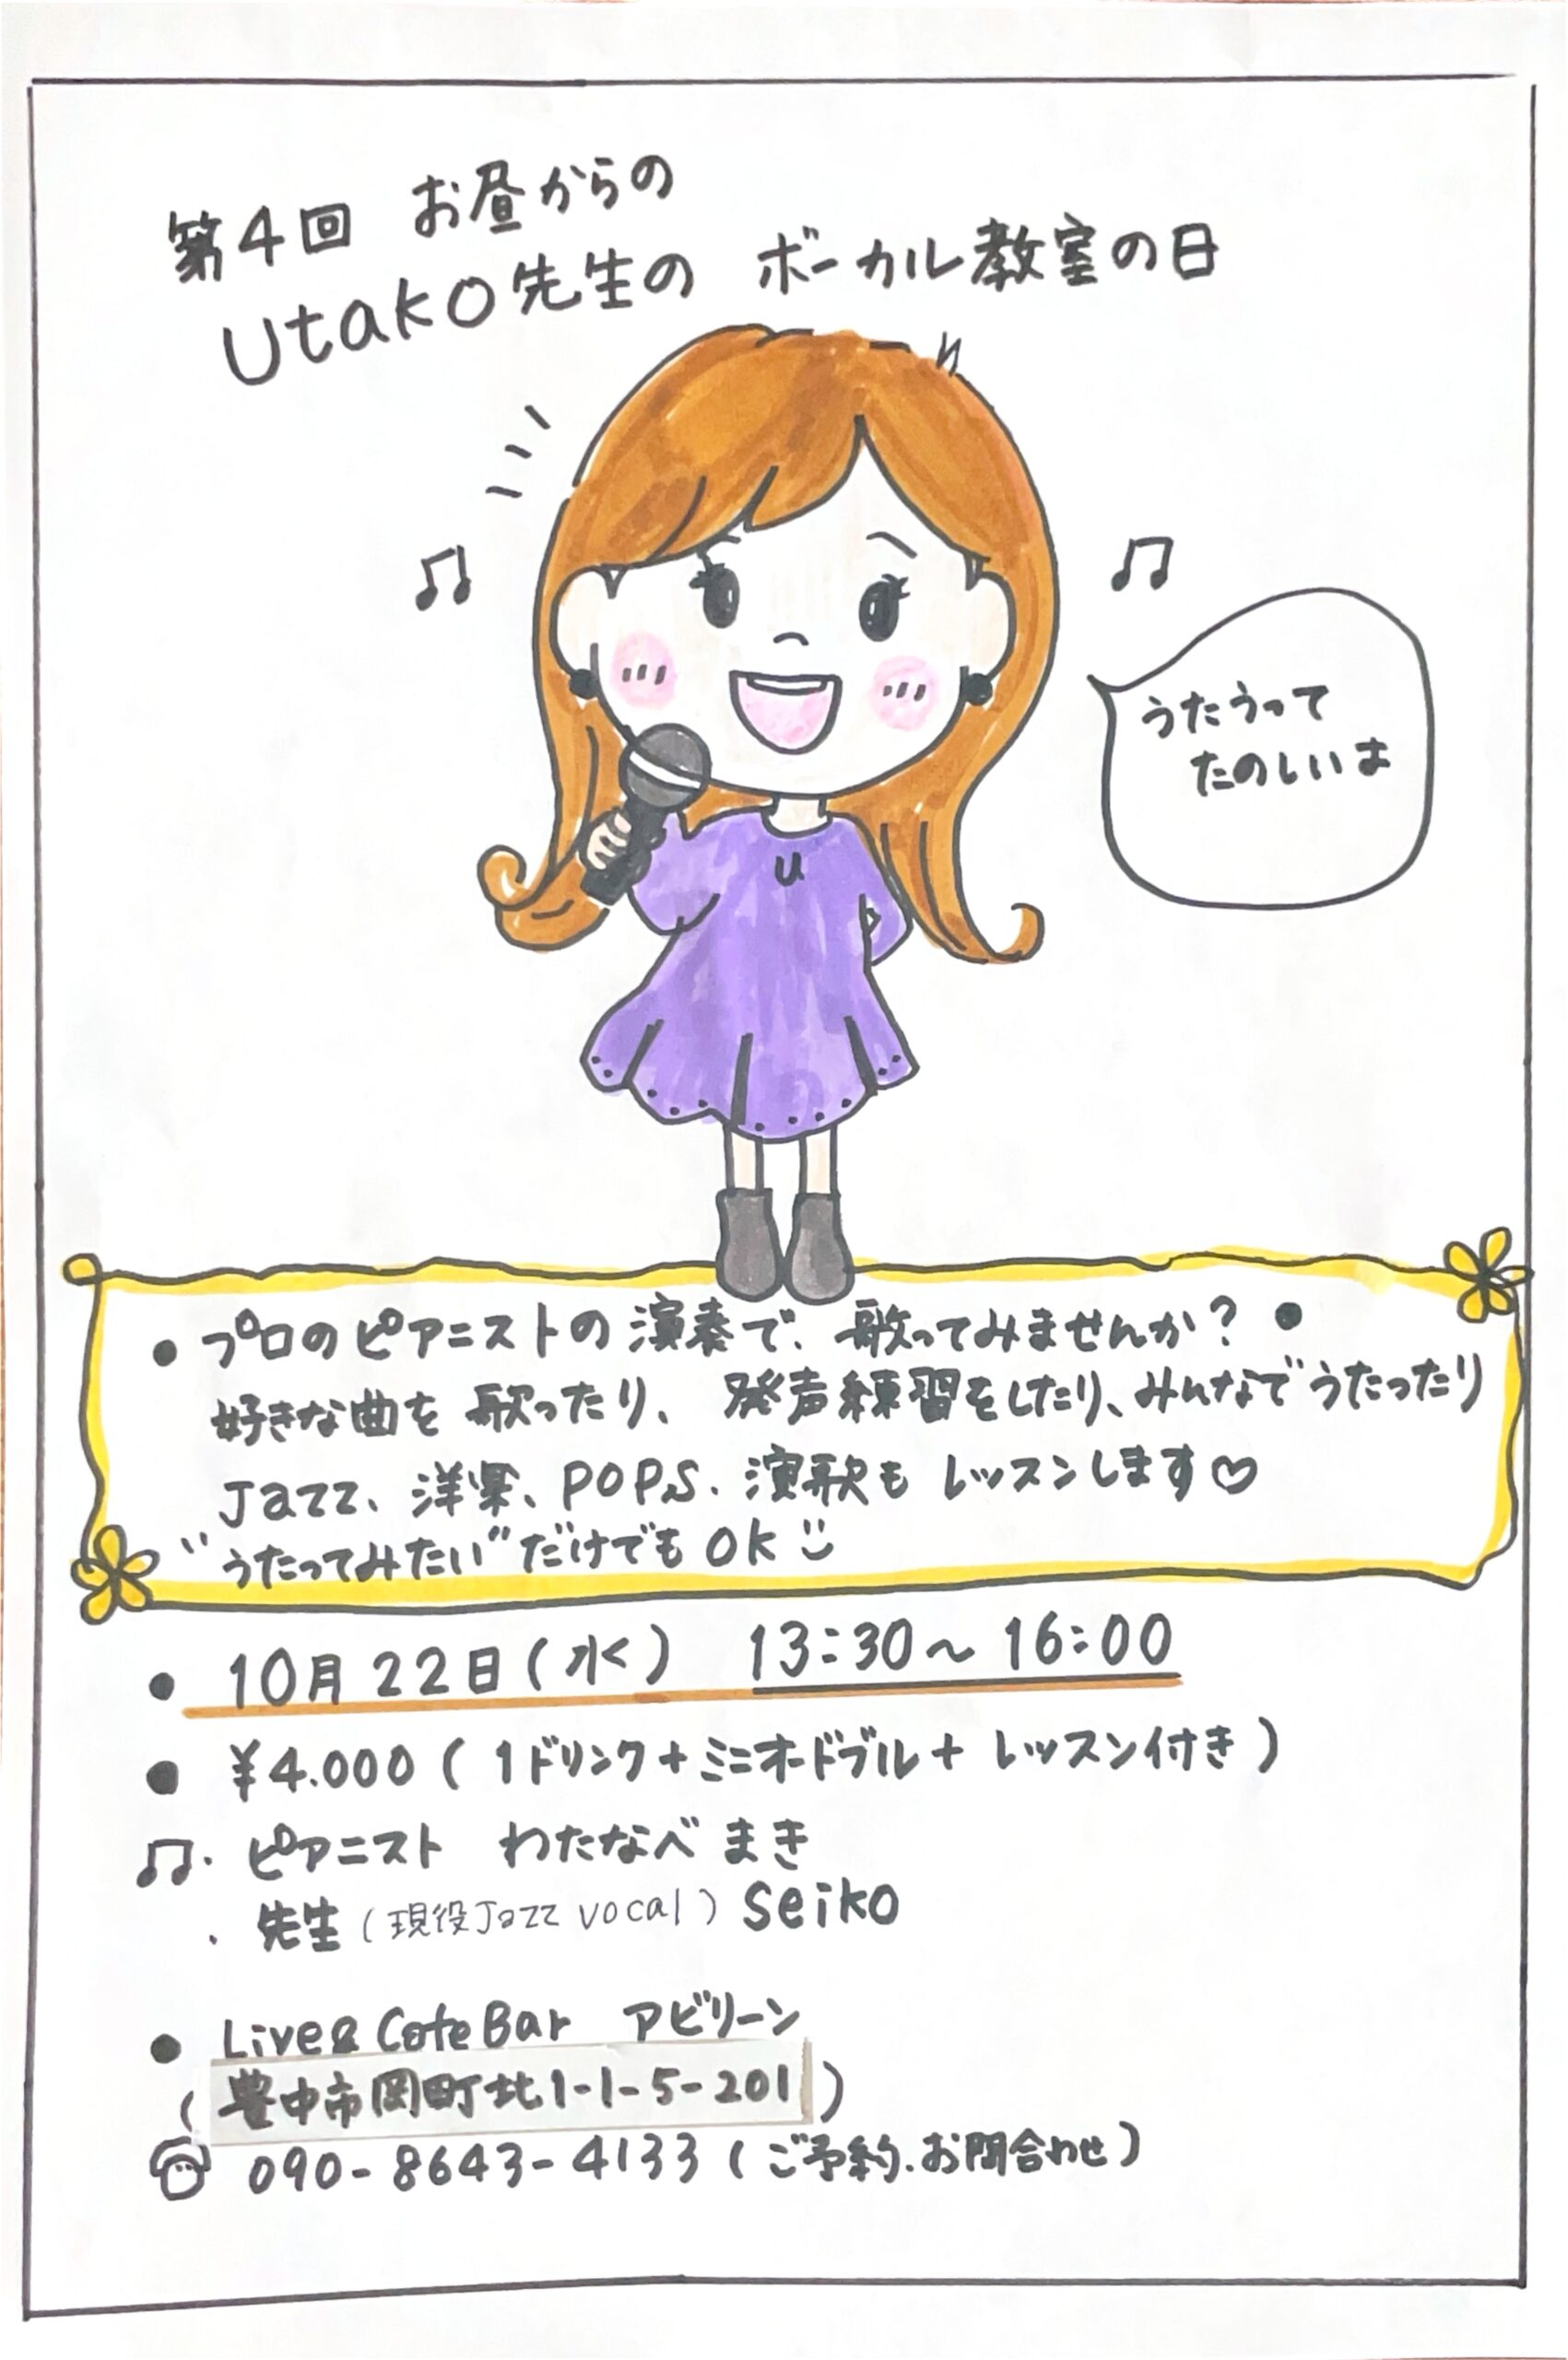 第4回 お昼からの
Utako先生の ボーカル教室の日
うたうって
たのしいよ
U
• プロのピアニストの演奏で、歌ってみませんか? •
好きな曲を歌ったり、発声練習をしたり、みんなでうたったり
Jazz、洋楽、POPS、演歌も レッスンします♡
"うたってみたい"だけでもOK
• 10月22日(水) 13:30〜16:00
• ¥4.000(1ドリンク+ミニオードブル+レッスン付き)
♫・ピアニスト わたなべ まき
・先生(現役Jazz vocal) Seiko
• Live&Cafe Bar アビリーン
(豊中市岡町北1-1-5-201)
090-8643-4133(ご予約.お問合わせ)